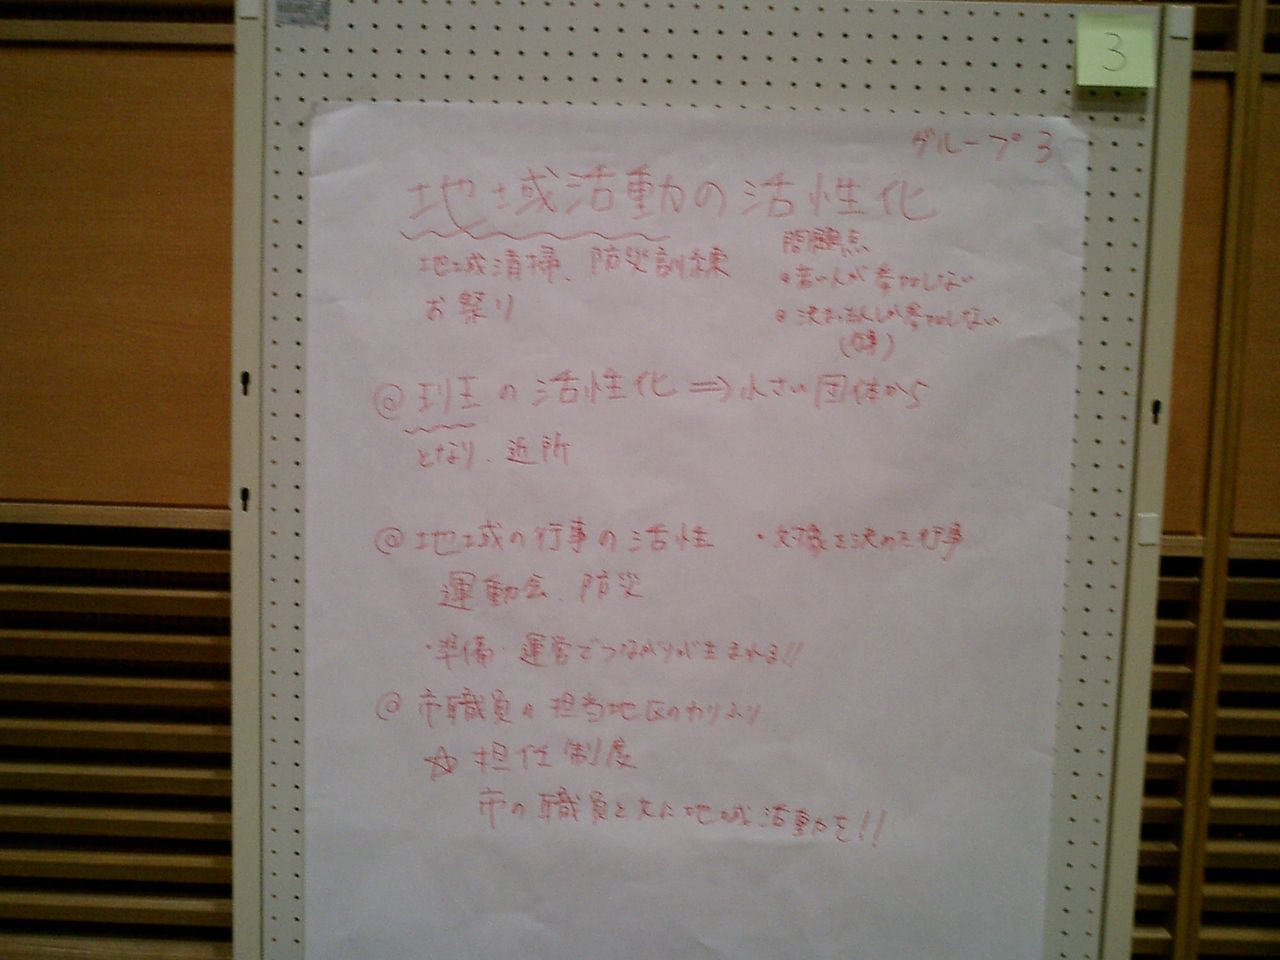 3
グループ3
地域活動の活性化
地域清掃、防災訓練
お祭り
問題点
・若い人が参加しない
・決まった人しか参加しない
◎班の活性化⇒小さい団体から
となり、近所
◎地域の行事の活性 ・対象を決めた行事
運動会、防災
・準備・運営でつながりが生まれる!!
◎市職員の担当地区のわりふり
☆担任制度
市の職員と共に地域活動を!!